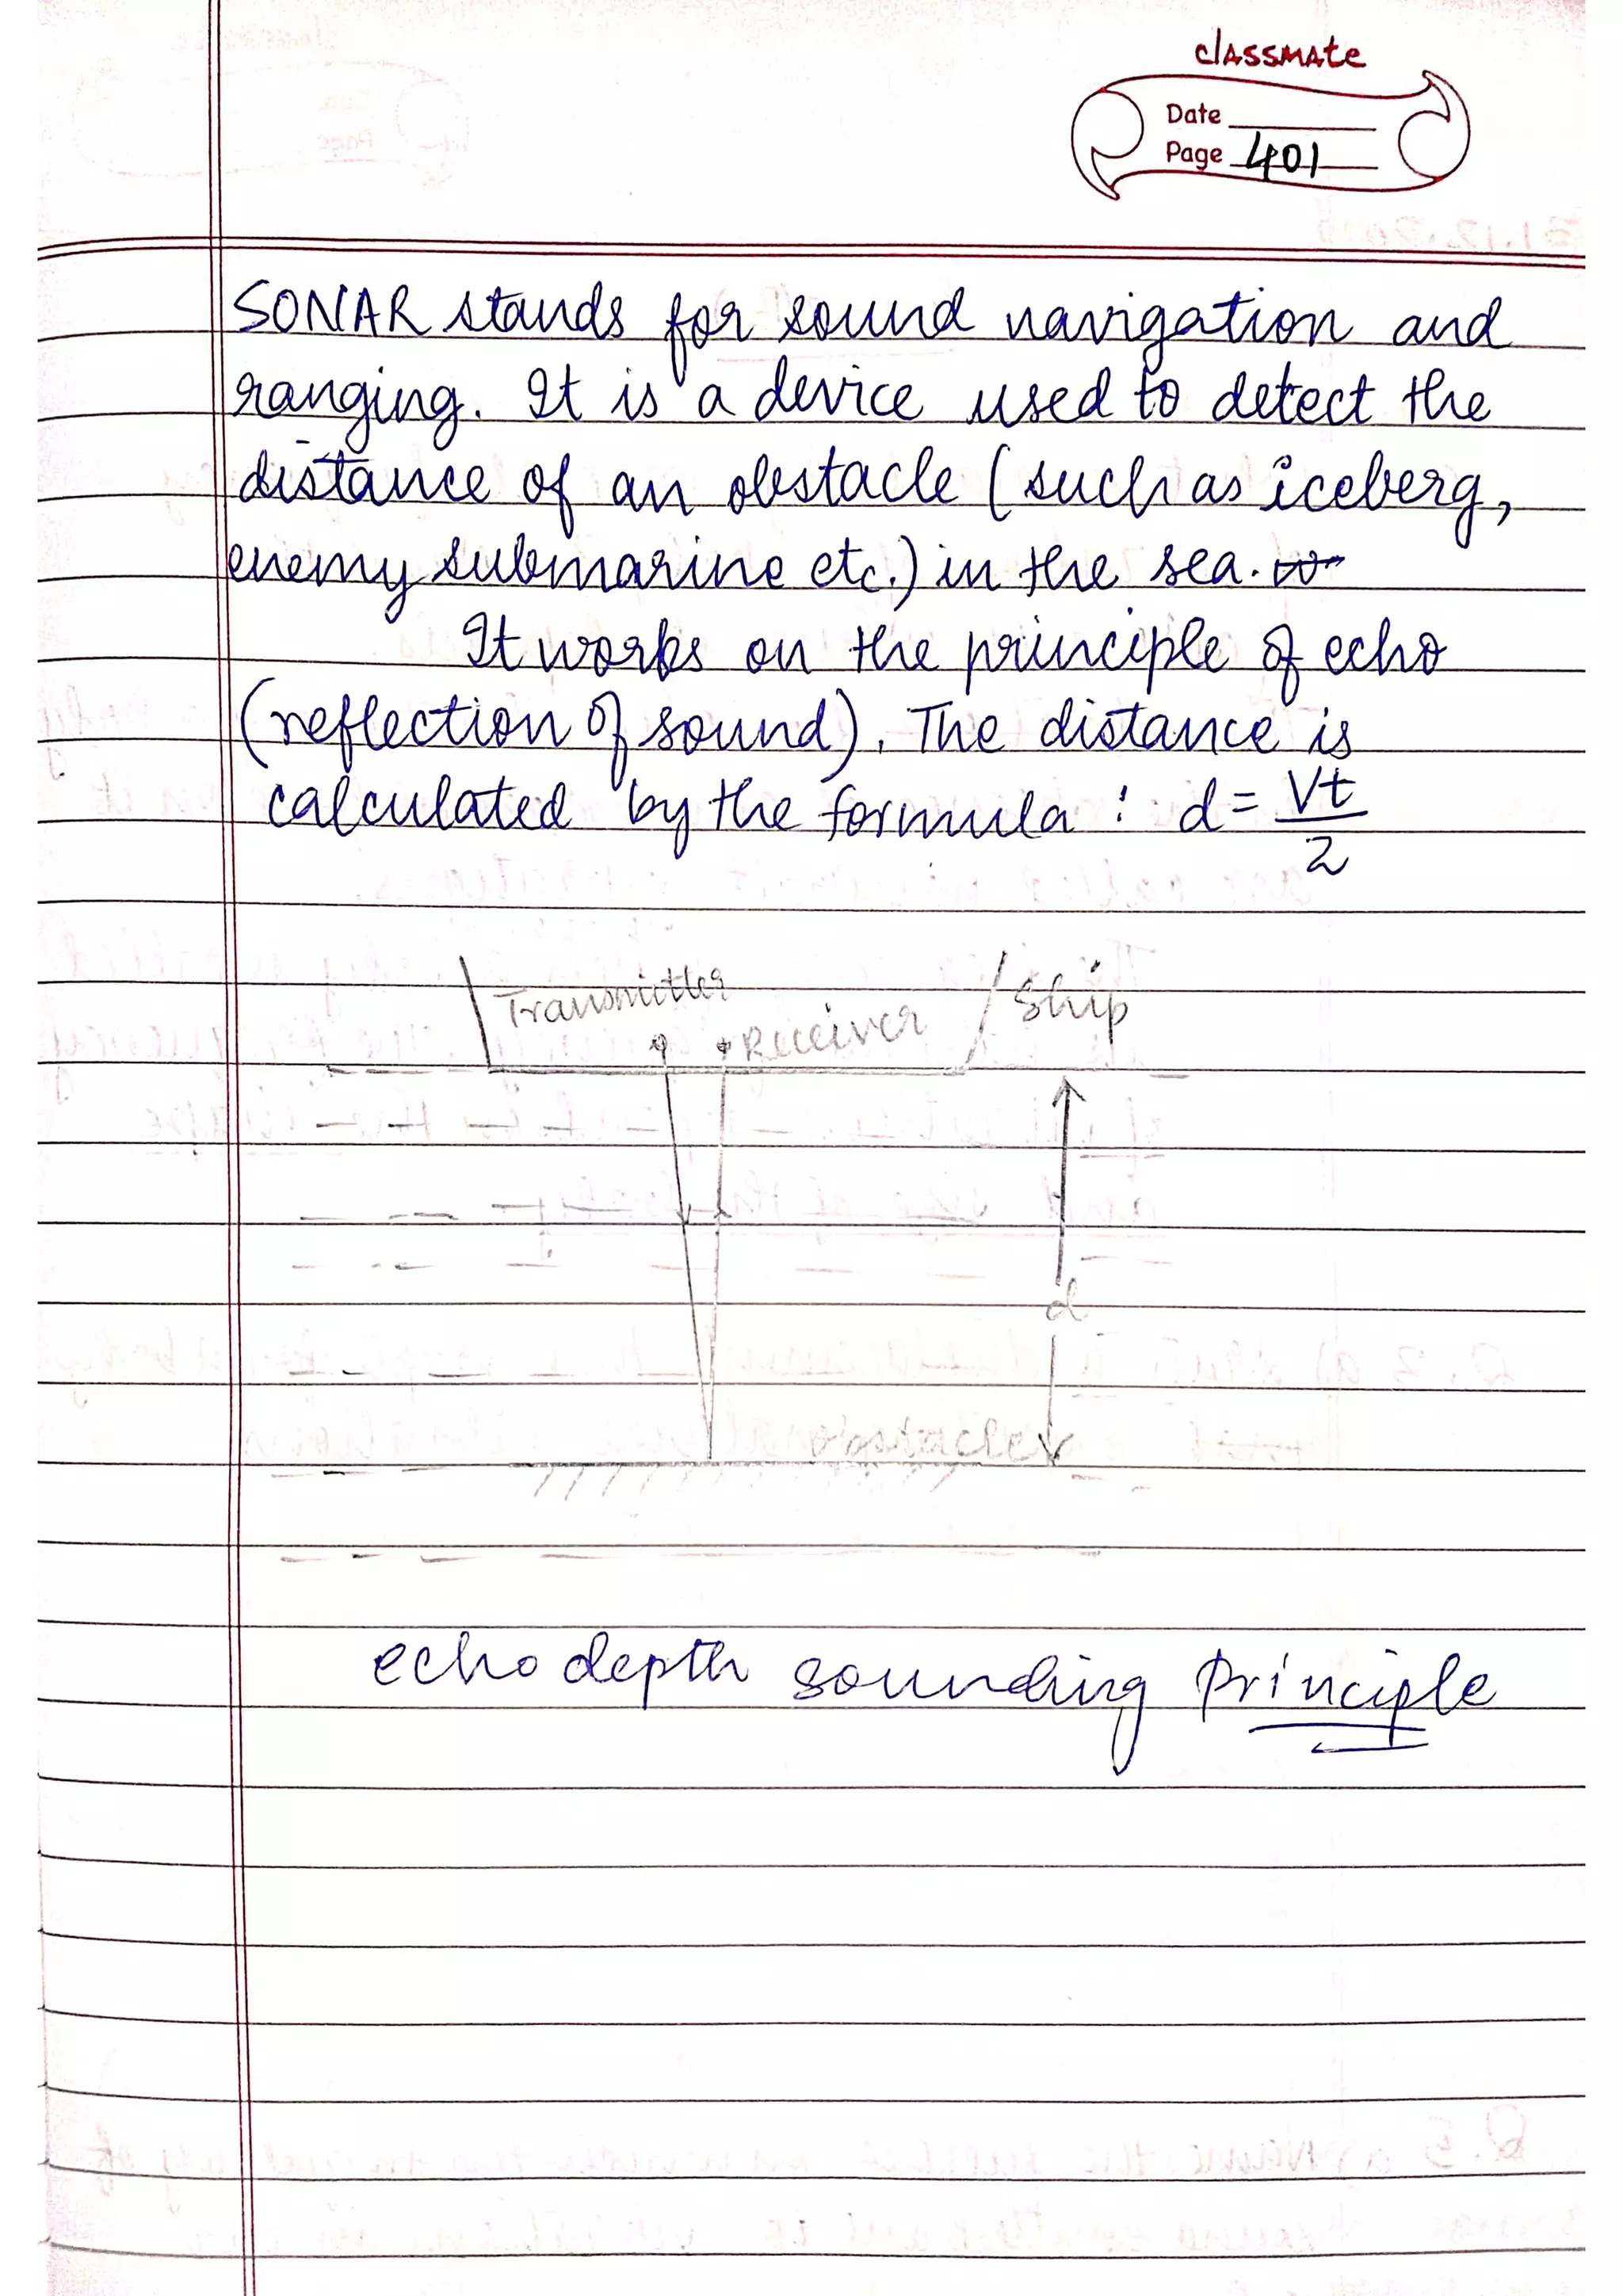 classmate
Date
Page 401
SONAR stands for sound navigation and
ranging. It is a device used to detect the
distance of an obstacle (such as iceberg,
enemy submarine etc.) in the sea.
It works on the principle of echo
(reflection of sound). The distance is
calculated by the formula : d = Vt/2
Transmitter
Receiver
Ship
d
obstacle
echo depth sounding Principle